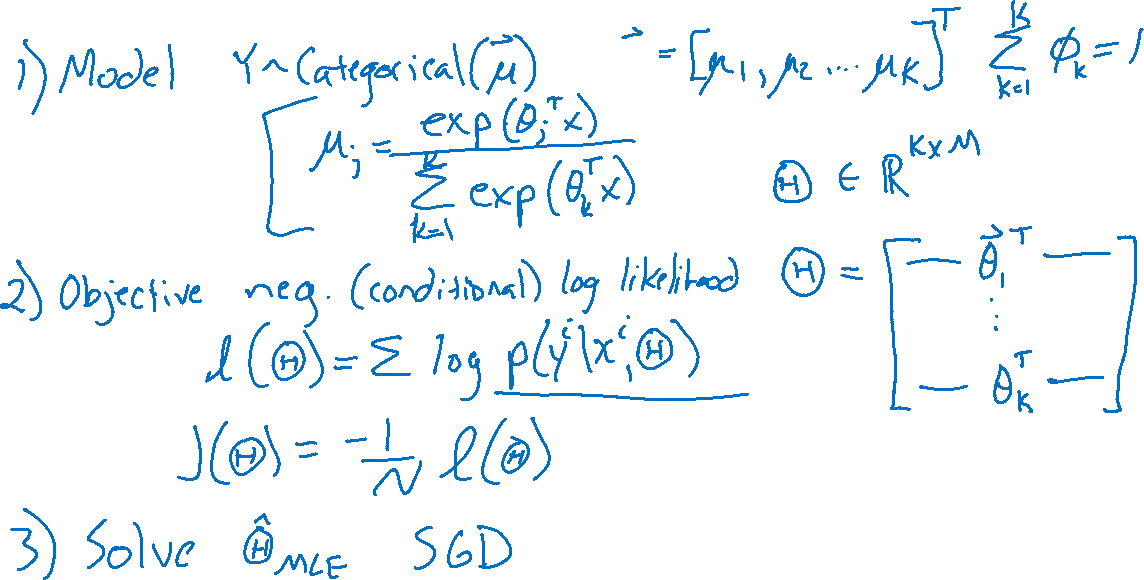 1) Model Y~Categorical(μ⃗) → = [μ₁, μ₂ ... μ_K]ᵀ ∑_{k=1}^{K} ϕ_k = 1
μ_j = exp(θ_jᵀx) / ∑_{k=1}^{K} exp(θ_kᵀx)
Θ ∈ ℝ^{K×M}
2) Objective neg. (conditional) log likelihood
Θ = [— θ⃗₁ᵀ — ⋮ — θ_Kᵀ —]
ℓ(Θ) = Σ log p(yⁱ|xⁱ,Θ)
J(Θ) = -1/N ℓ(Θ)
3) Solve Θ̂_MLE SGD